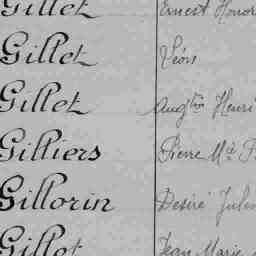 Gillet Ernest Honor
Gillet Léon
Gillet Aug<sup>tin</sup> Henri
Gilliers Pierre M<sup>ie</sup>
Gillorin Désiré Jules
Gillot Jean Marie